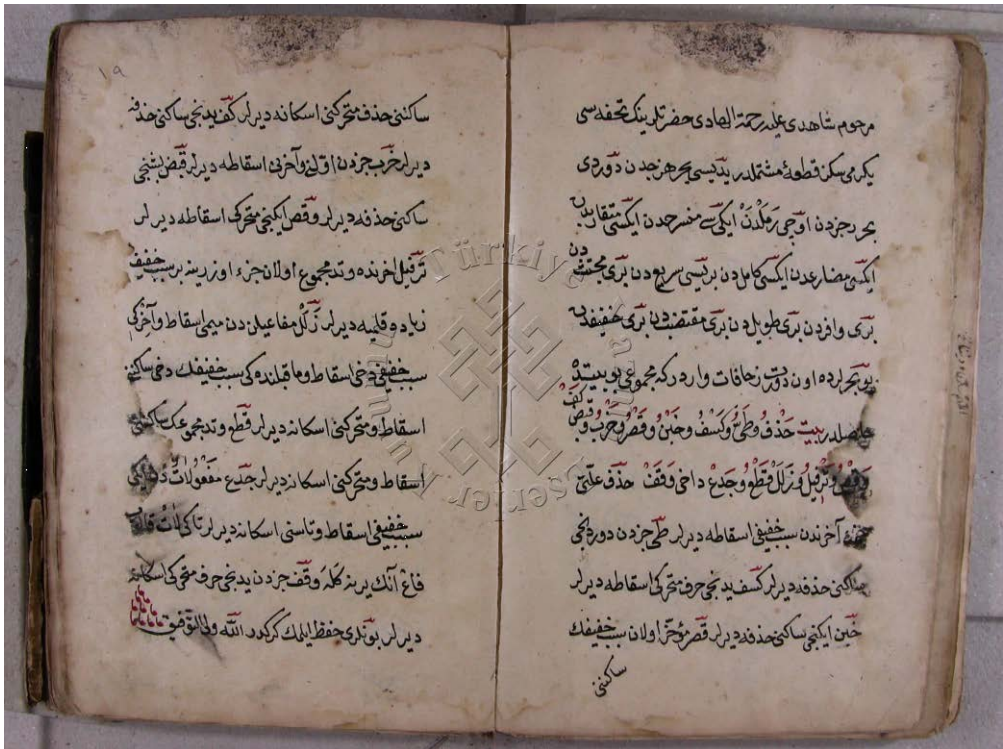 مرحوم شاهدی علیه رحمة الهادی حضرتلرینك تحفه سی
یكرمی سكز قطعهٔ مشتملدر یدیسی بحر هزجدن دوردی
بحر رجزدن اوچی رملدن ایكیسی منسرحدن ایكسی متقاربدن
ایكسی مضارعدن ایكسی كاملدن بریسی سریعدن بری مجتثدن
بری وافردن بری طویلدن بری مقتضبدن بری خفیفدن
بو بحرلرده اون درت زحافات واردركه مجموعی بو بیتده
حاصلدر بیت حذف وطی وكسف وخبن وقصر وخرب وقبض كف
وقص وترفیل وزلل قطع وجدع داخی وقف حذف علتی
آخرندن سبب خفیفی اسقاطه دیرلر طی جزدن دوردنجی
ساكنی حذفه دیرلر كسف یدنجی حرف متحركی اسقاطه دیرلر
خبن ایكنجی ساكنی حذفه دیرلر قصر مؤخر اولان سبب خفیفك
ساكننی
١٩
ساكننی حذف متحركنی اسكانه دیرلر كف یدنجی ساكنی حذفه
دیرلر خرب جزدن اولنی وآخرنی اسقاطه دیرلر قبض بشنجی
ساكنی حذفه دیرلر وقص ایكنجی متحركی اسقاطه دیرلر
ترفیل اخرنده وتد مجموع اولان جزء اوزرینه بر سبب خفیف
زیاده قلمیه دیرلر زلل مفاعیلن دن میمی اسقاط وآخركی
سبب خفیفی دخی اسقاط وماقبلنده كی سبب خفیفك دخی ساكننی
اسقاط ومتحركنی اسكانه دیرلر قطع وتد مجموعك ساكننی
اسقاط ومتحركنی اسكانه دیرلر جدع مفعولات دن ایكی
سبب خفیفی اسقاط وتاسنی اسكانه دیرلر تاكی لات قالور
فاع آنك یرینه كلە وقف جزدن یدنجی حرف متحركی اسكانه
دیرلر بونلری حفظ ایلمك كركدر الله ولی التوفیق
Türkiye